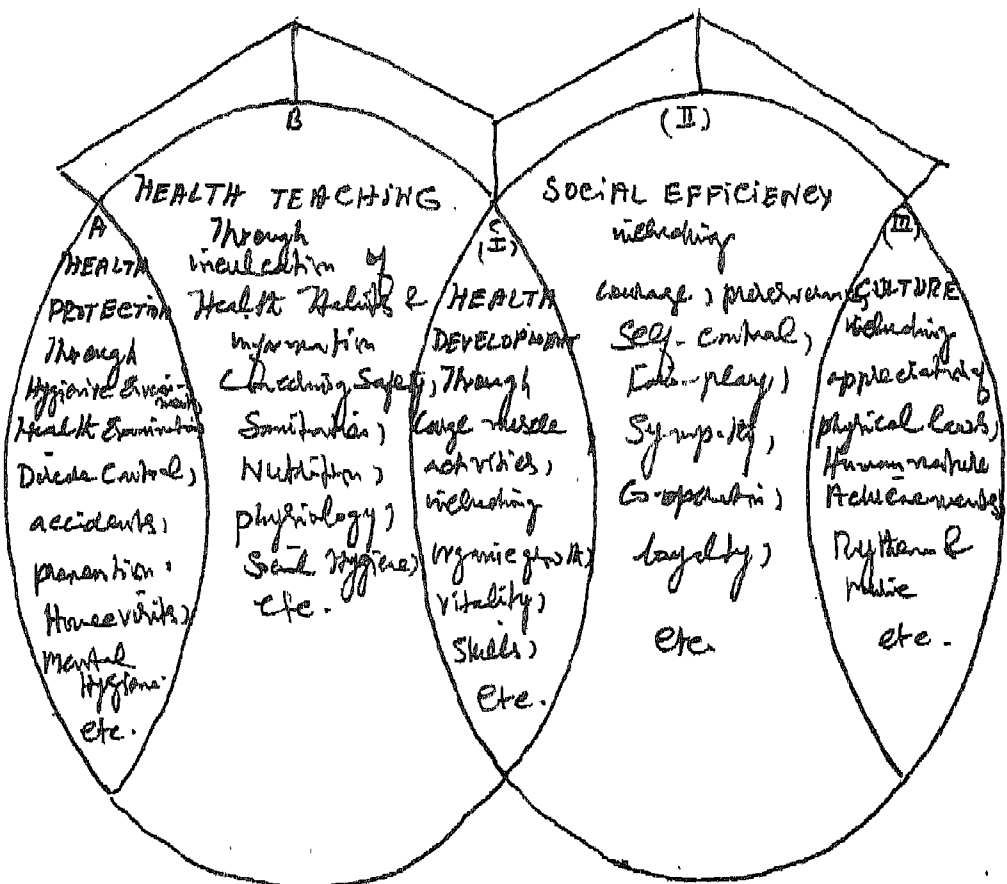 B
HEALTH TEACHING
Through
inculcation of
Health Habits &
information
Concerning Safety,
Sanitation,
Nutrition,
physiology,
Social Hygiene,
etc.
A
HEALTH
PROTECTION
Through
Hygienic Environment,
Health Examination
Disease Control,
accidents,
prevention,
Home visits,
Mental
Hygiene.
etc.
C
(I)
HEALTH
DEVELOPMENT
Through
large muscle
activities,
including
organic growth,
vitality,
Skills,
etc.
(II)
SOCIAL EFFICIENCY
including
courage, perseverance,
Self-control,
Fair-play,
Sympathy,
Co-operation,
loyalty,
etc.
(III)
CULTURE
including
appreciation of
physical laws,
Human-nature
Achievements,
Rythem &
music
etc.